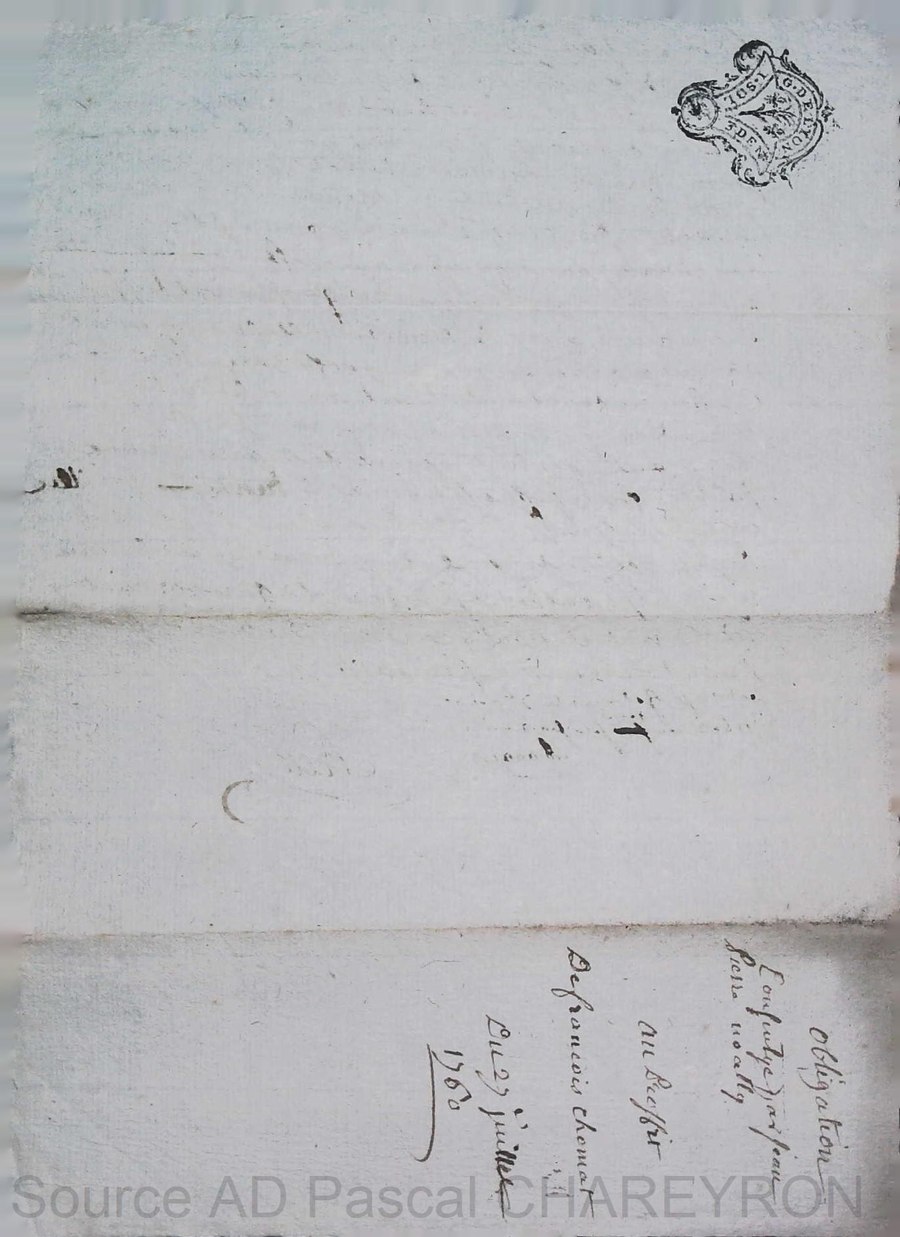 G. DE LYON
10S.1
3DEN
Obligation
Consentye par jean
Pierre noally
au proffit
De francois chomat
Du 27 juillet
1760
Source AD Pascal CHAREYRON